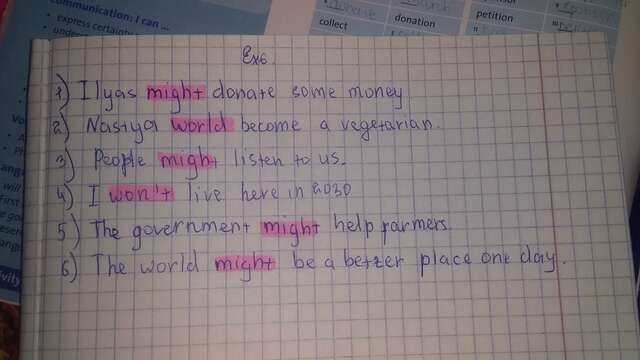 Communication: I can ...
express certainty
collect
donation
petition
Ex6
1) Ilyas might donate some money
2) Nastya world become a vegetarian.
3) People might listen to us.
4) I won't live here in 2030
5) The government might help farmers.
6) The world might be a better place one day.